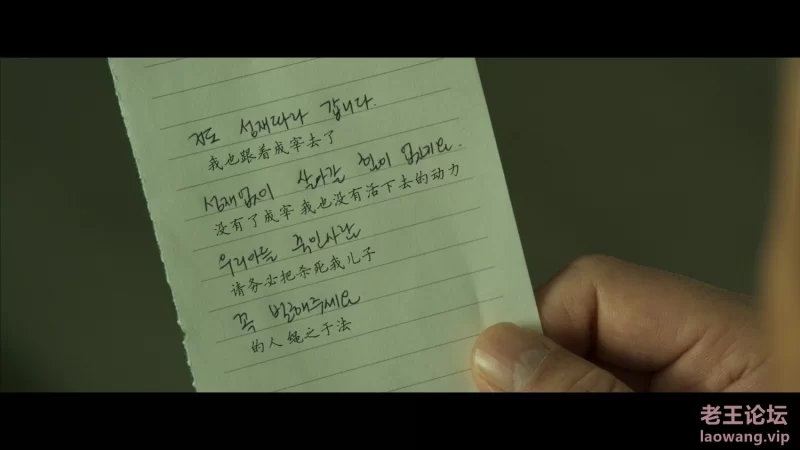 저도 성재따라 갑니다.
我也跟着成宰去了
성재없이 살아갈 힘이 없네요.
没有了成宰 我也没有活下去的动力
우리아들 죽인사람
请务必把杀死我儿子
꼭 벌해주세요
的人 绳之于法
老王论坛
laowang.vip